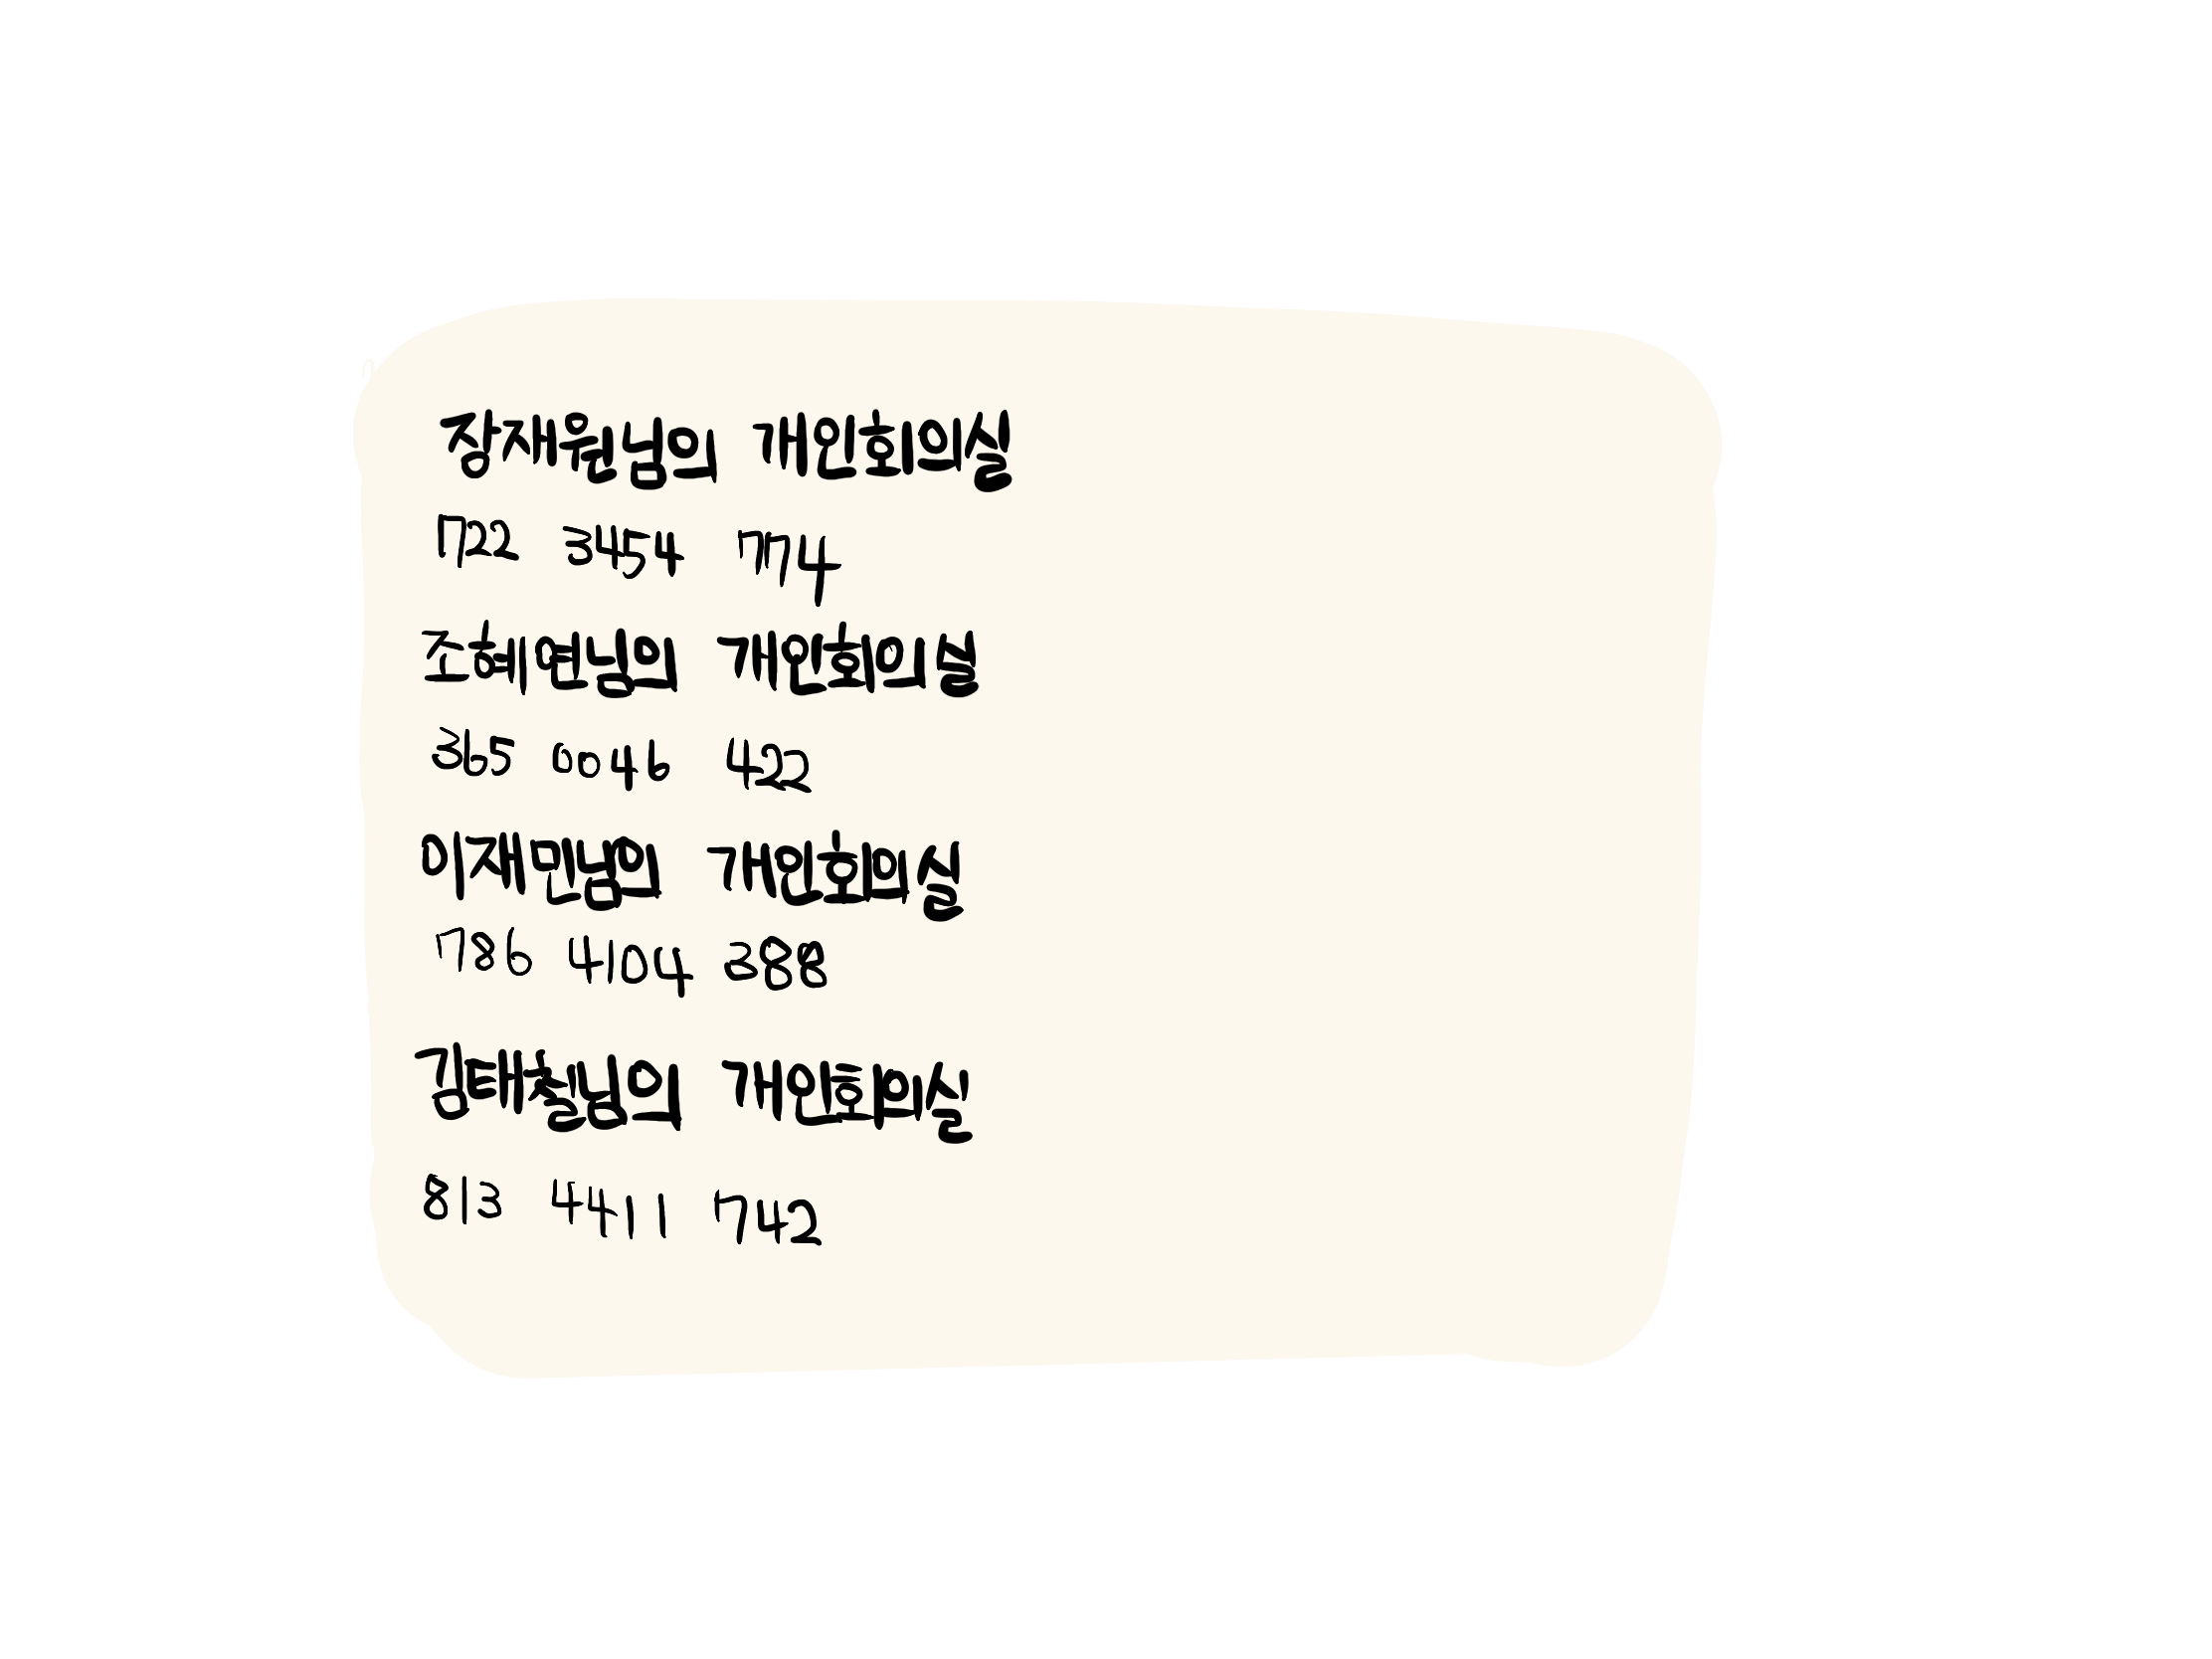 장재원님의 개인회의실
722 3454 774
조혜연님의 개인회의실
365 0046 422
이재민님의 개인회의실
786 4104 388
김태철님의 개인회의실
813 4411 742